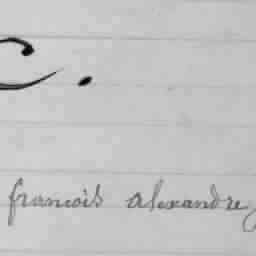 C.
francois alexandre